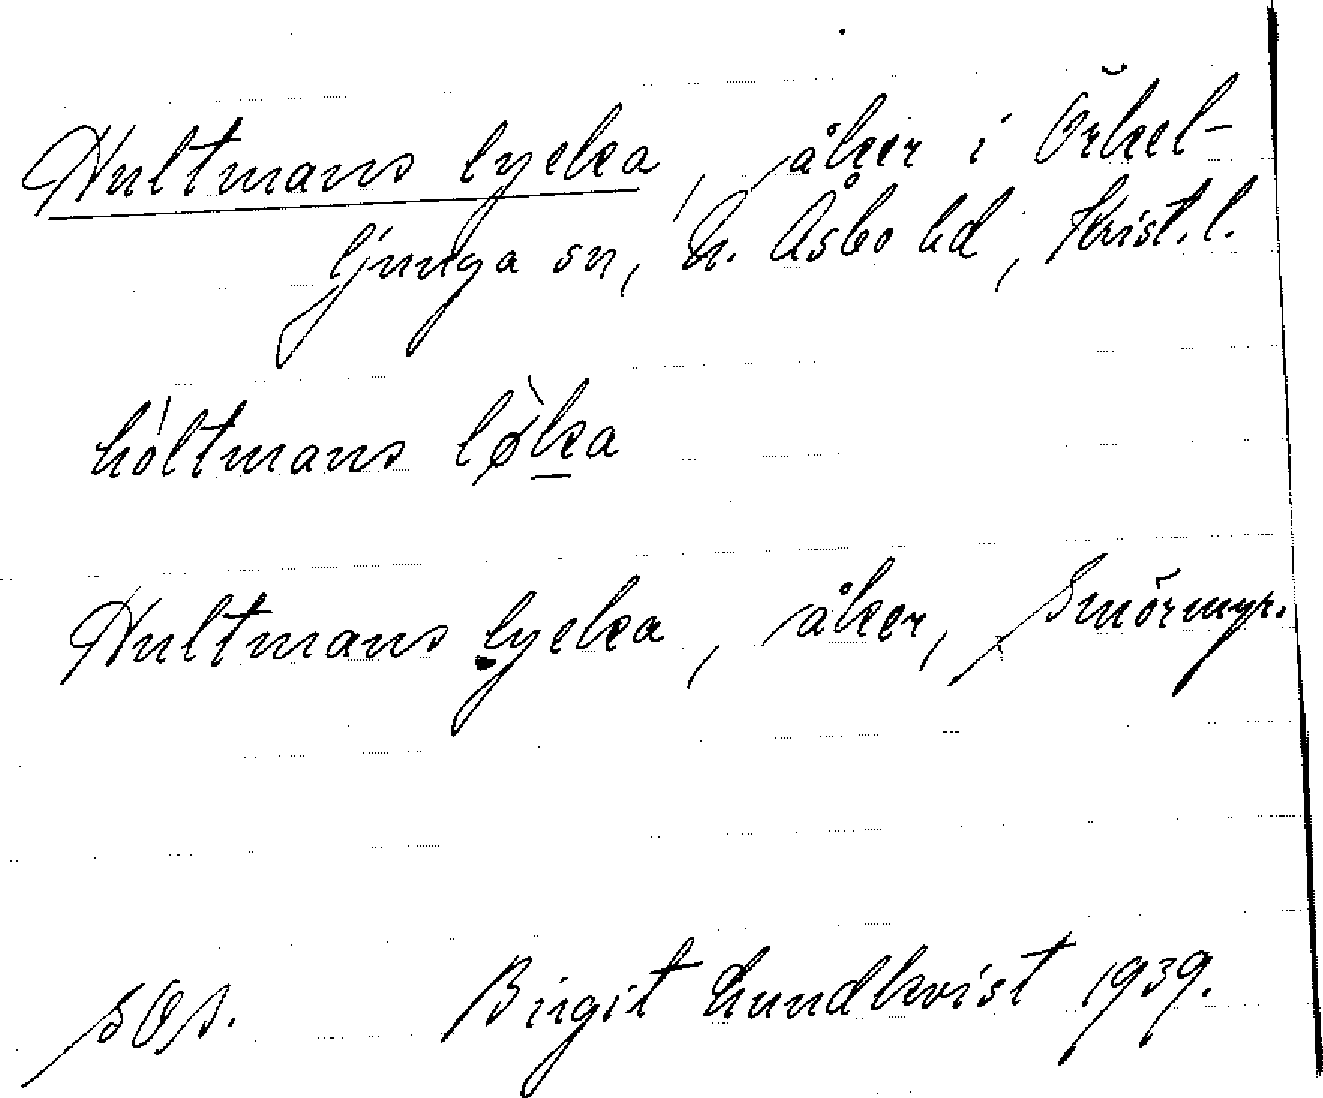 Hultmans lycka, åker i Örkel-
ljunga sn, N. Åsbo hd, Krist. l.
hóltmans lø̀ka
Hultmans lycka, åker, Smörmyr.
SOA. Birgit Lundkvist 1939.